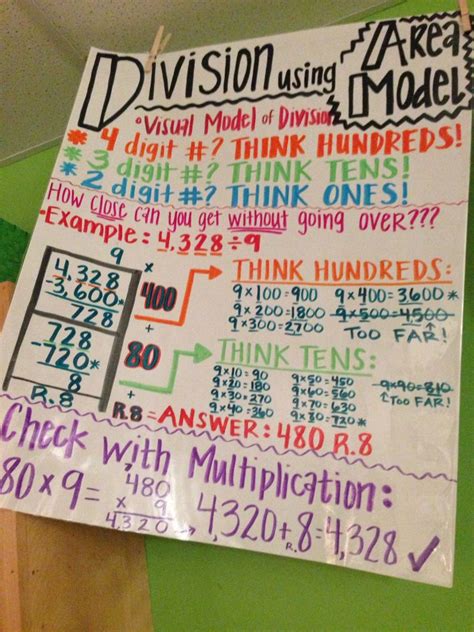 Division using Area Model
° Visual Model of Division
* 4 digit #? THINK HUNDREDS!
* 3 digit #? THINK TENS!
* 2 digit #? THINK ONES!
How close can you get without going over???
-Example: 4,328÷9
9 x
4,328
-3,600*
728
400
+
728
-720*
8
80
+
R.8
R.8 = ANSWER: 480 R.8
THINK HUNDREDS:
9x100=900
9x200=1800
9x300=2700
9x400=3600*
9x500=4500
TOO FAR!
THINK TENS:
9x10=90
9x20=180
9x30=270
9x40=360
9x50=450
9x60=540
9x70=630
9x80=720*
9x90=810
TOO FAR!
Check with Multiplication:
80x9=
480
x 9
4,320
4,320+8=4,328 ✓
R.